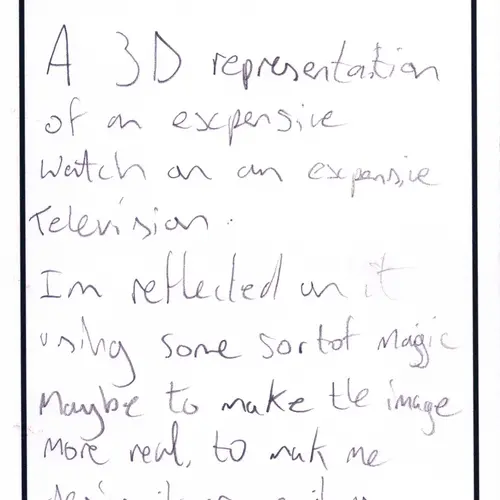 A 3D representation
of an expensive
watch on an expensive
Television.
Im reflected on it
using some sort of magic
Maybe to make the image
more real, to mak me